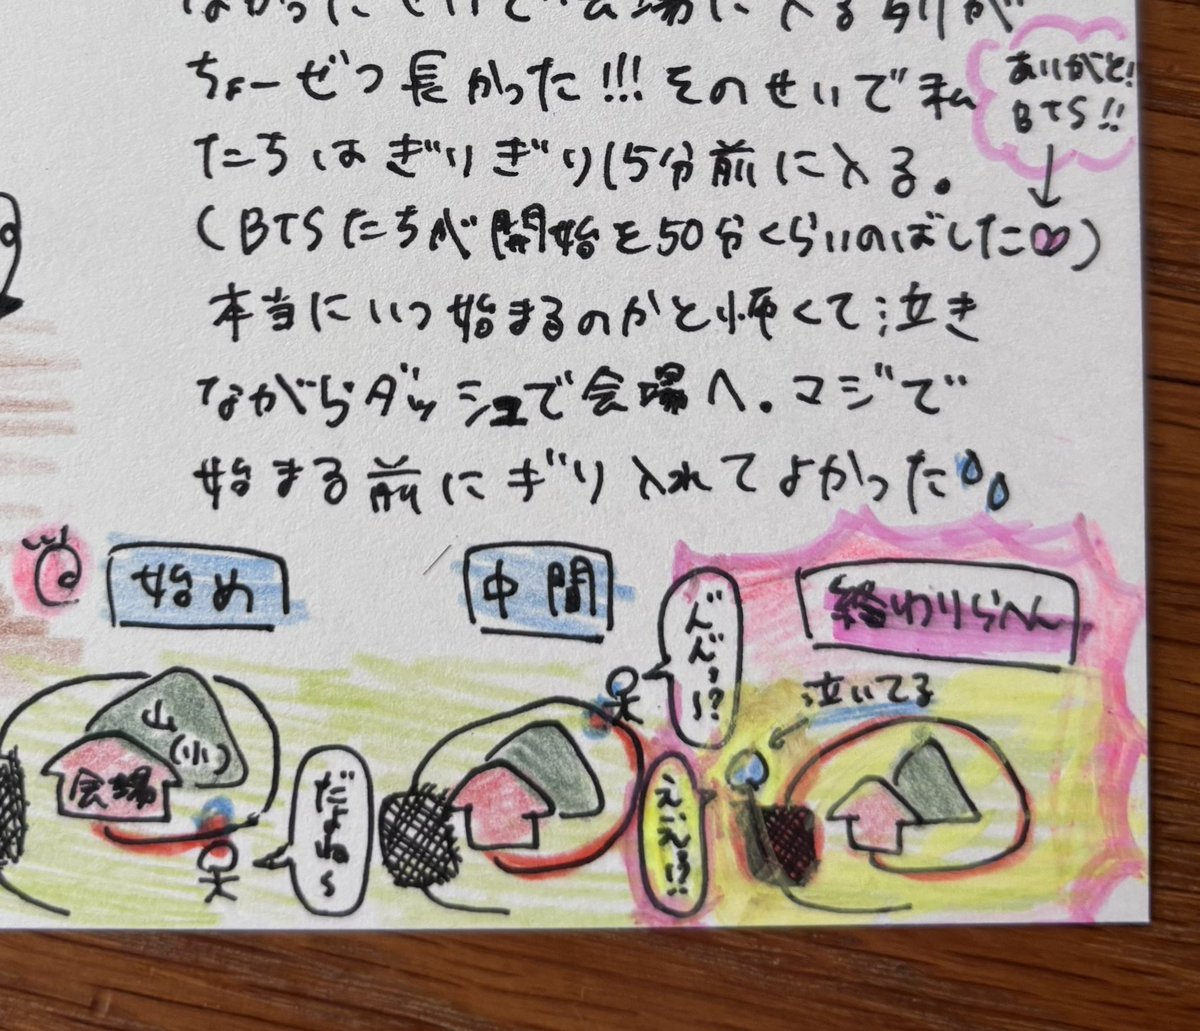 なかったせいで会場に入る列が
ちょーぜつ長かった!!!そのせいで私
ありがと!
BTS!!
たちはぎりぎり15分前に入る。
(BTSたちが開始を50分くらいのばした♡)
本当にいつ始まるのかと怖くて泣き
ながらダッシュで会場へ.マジで
始まる前にギリ入れてよかった
始め
中間
終わりらへん
山
(小)
会場
だよね〜
んん〜!?
泣いてる
え、え!?!!